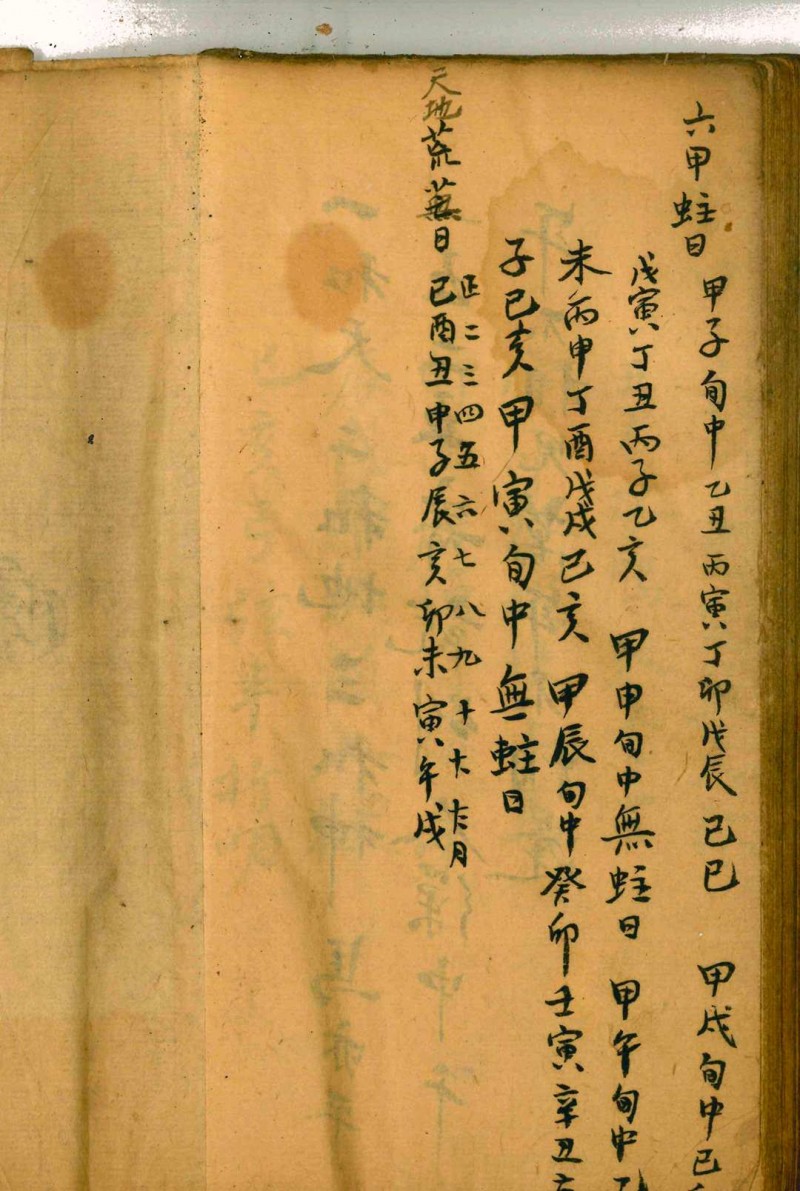 六甲蛀日 甲子旬中乙丑丙寅丁卯戊辰己巳 甲戌旬中己
戊寅丁丑丙子乙亥 甲申旬中無蛀日 甲午旬中
未丙申丁酉戊戌己亥 甲辰旬中癸卯壬寅辛丑
子己亥 甲寅旬中無蛀日
天地荒蕪日
正二三四五六七八九十十一十二月
巳酉丑申子辰亥卯未寅午戌